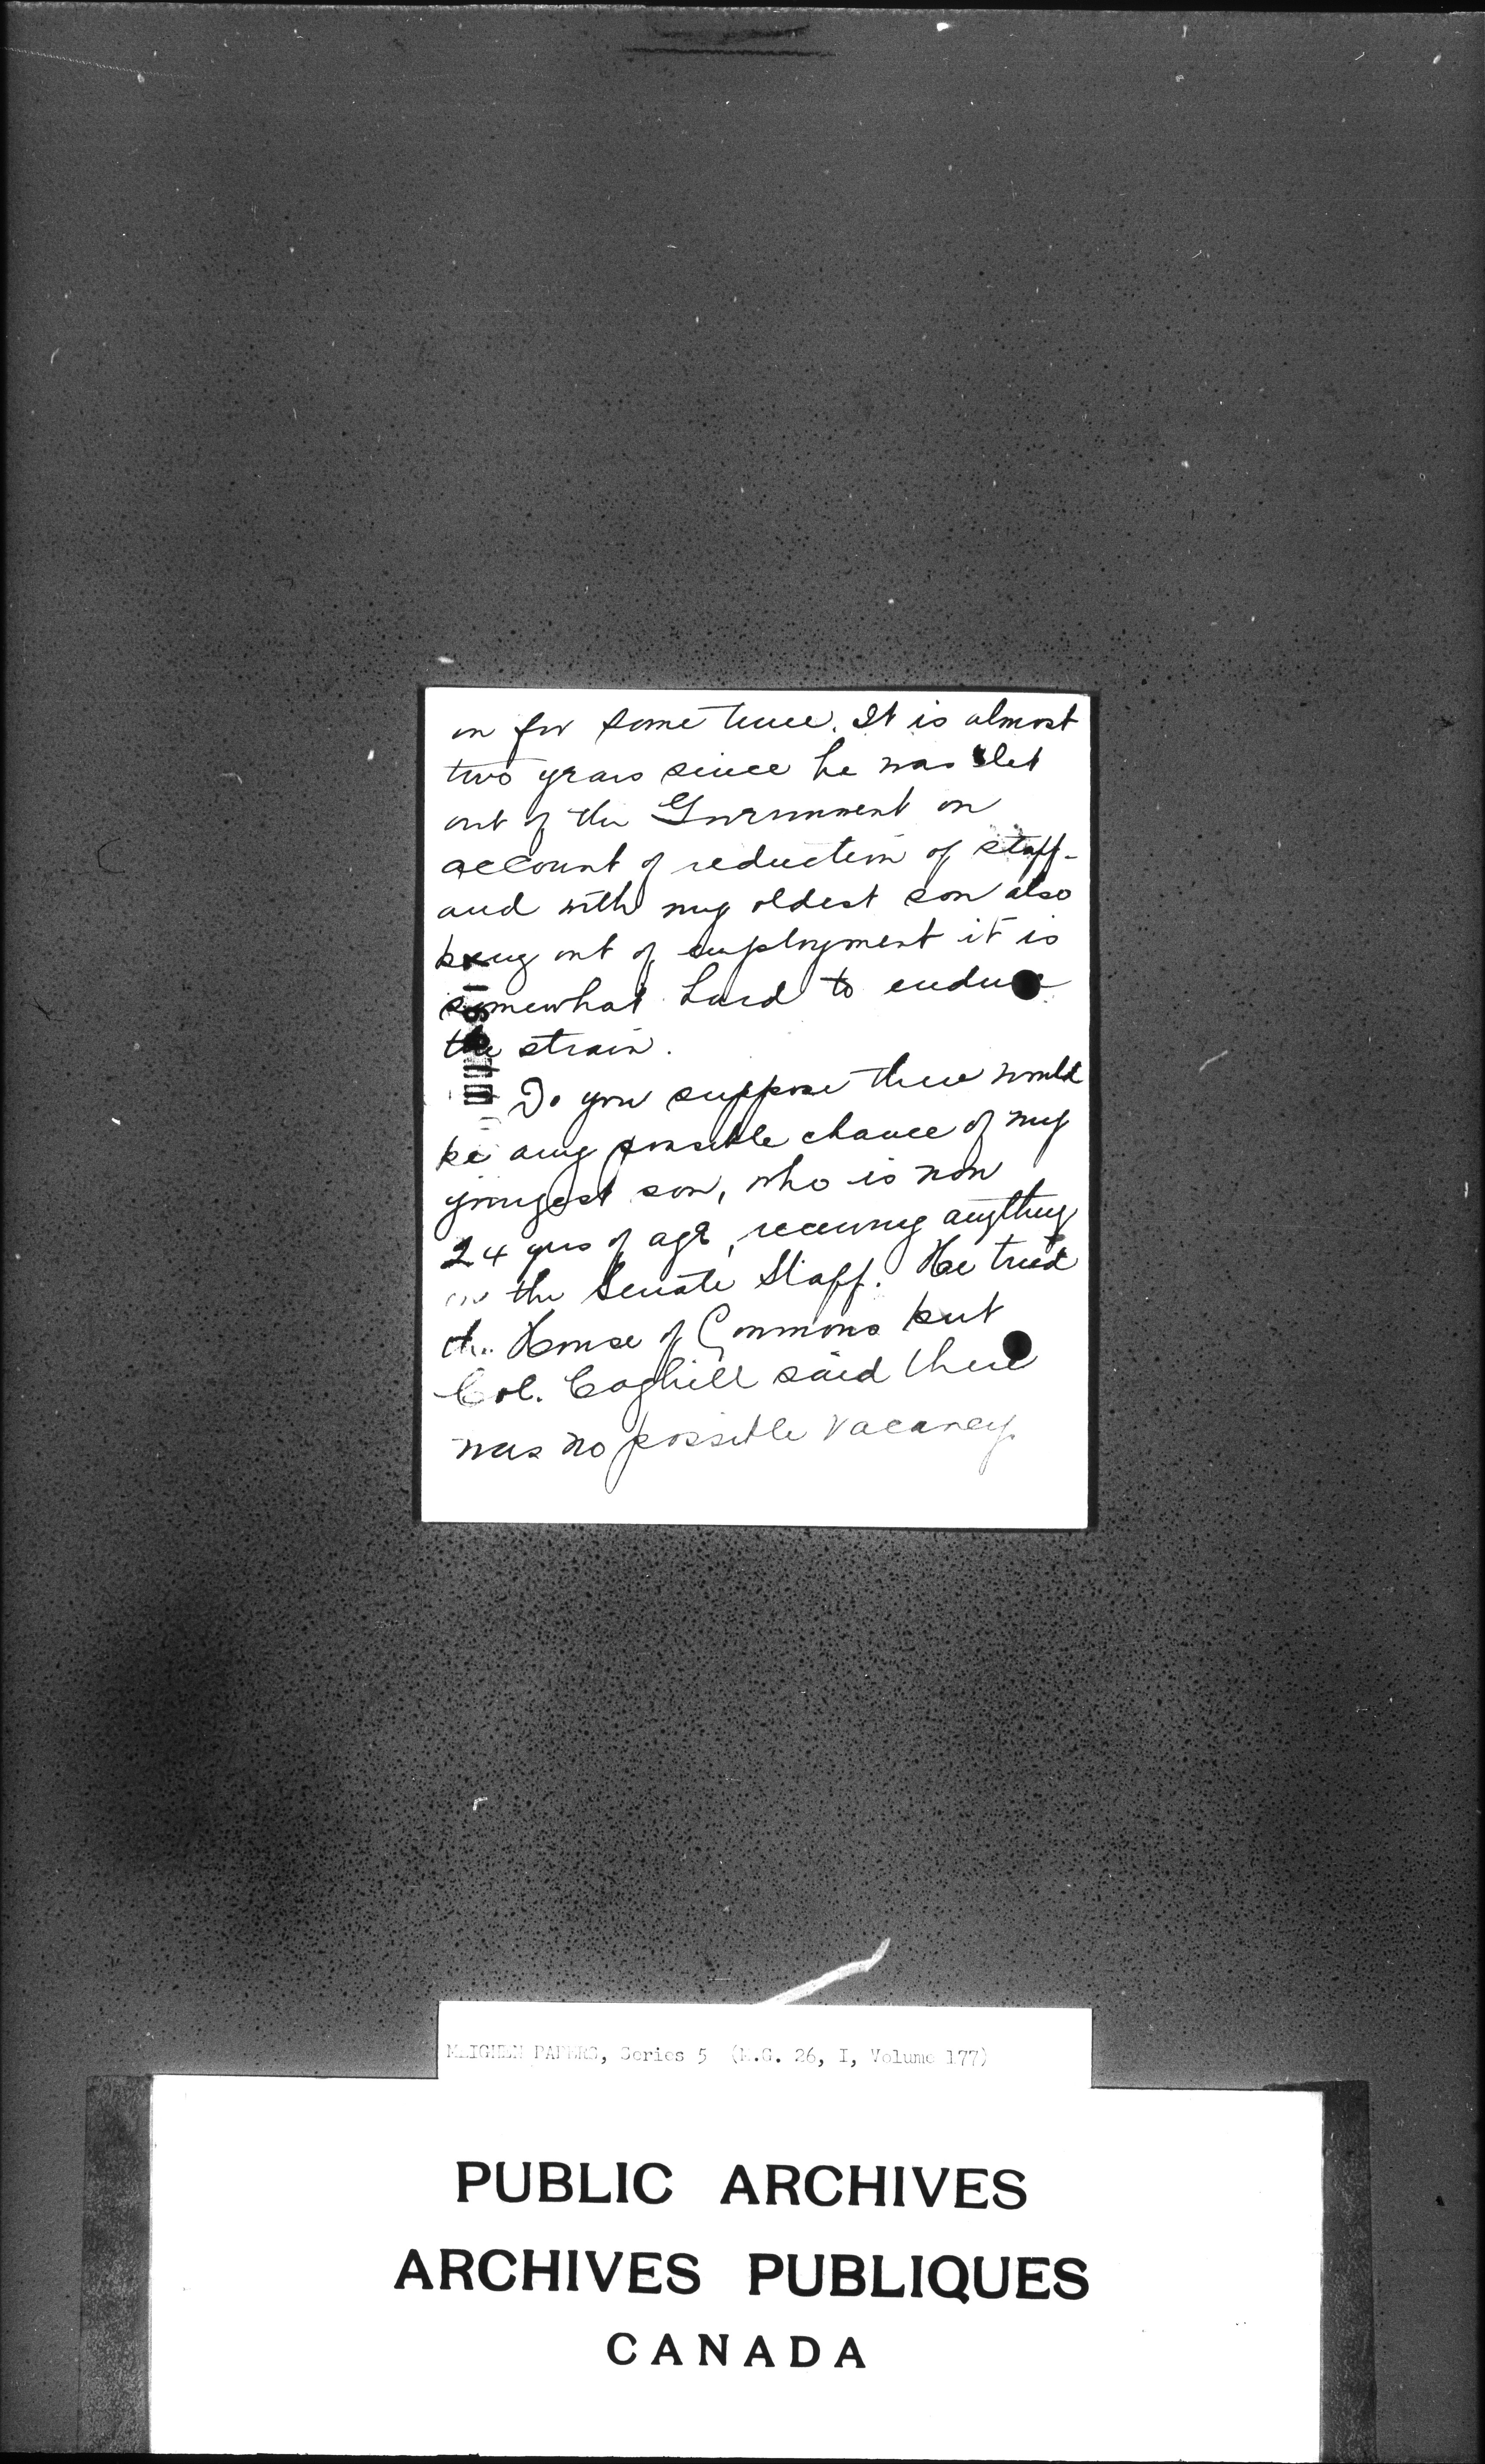 on for some time. It is almost
two years since he was let
out of the Government on
account of reduction of staff -
and with my oldest son also
being out of employment it is
somewhat hard to endure
the strain.
Do you suppose there would
be any possible chance of my
youngest son, who is now
24 yrs of age, receiving anything
on the Senate Staff. He tried
the House of Commons but
Col. Coghill said there
was no possible vacancy.
MEIGHEN PAPERS, Series 5 (M.G. 26, I, Volume 177)
PUBLIC ARCHIVES
ARCHIVES PUBLIQUES
CANADA